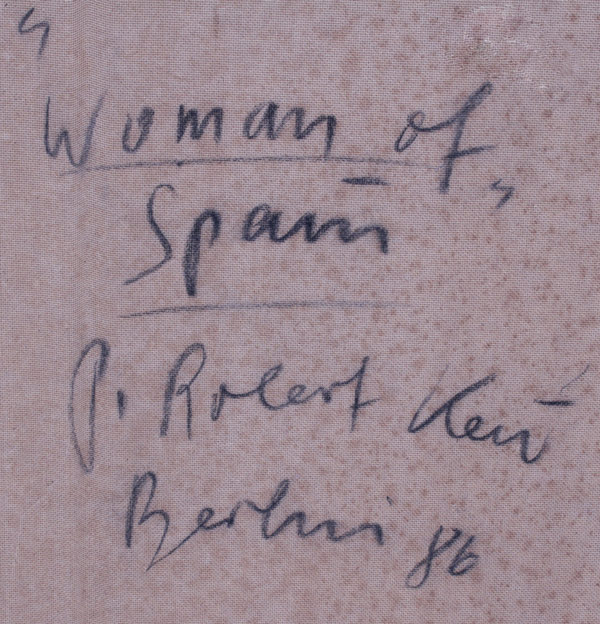 "Woman of
Spain"
P. Robert
Berlin 86